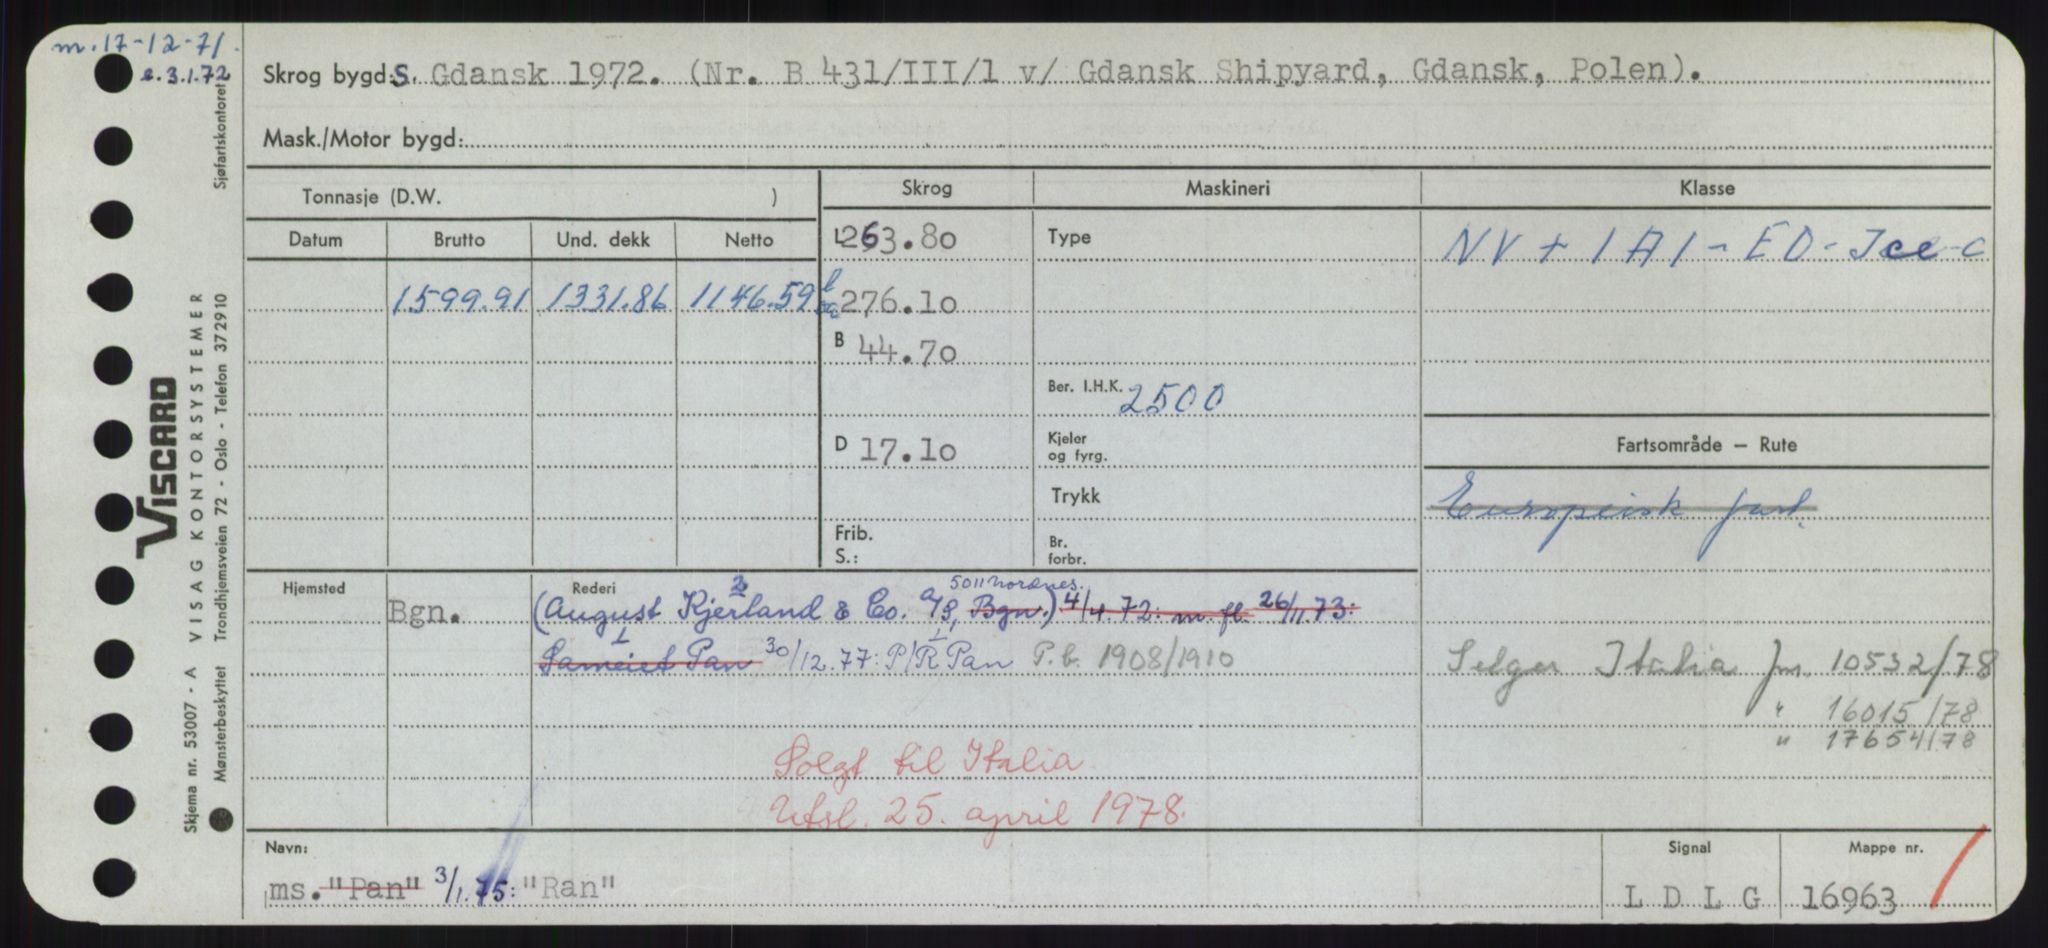 m. 17-12-71.
e. 3.1.72
Sjøfartskontoret
Skrog bygd: S. Gdansk 1972. (Nr. B 431/III/1 v/ Gdansk Shipyard, Gdansk, Polen).
Mask./Motor bygd:
Tonnasje (D.W. )
Skrog
Maskineri
Klasse
Datum
Brutto
Und. dekk
Netto
L 263.80
Type
NV + 1A1 - EO - Ice - C
1599.91
1331.86
1146.59
276.10
B 44.70
Ber. I.H.K. 2500
D 17.10
Kjeler
og fyrg.
Fartsområde — Rute
Trykk
Europeisk fart.
Frib.
S.:
Br.
forbr.
Hjemsted
Rederi
5011 Nordnes.
2
Bgn.
(August Kjerland & Co. A/S, Bgn.) 4/4.72: m. fl. 26/11.73:
1
1
Sameiet Pan 30/12.77: P/R Pan P.b. 1908/1910
Selger Italia jnr. 10532/78
" 16015/78
" 17654/78
Solgt til Italia
Utsl. 25. april 1978.
Navn:
Signal
Mappe nr.
ms. "Pan" 3/1.75: "Ran"
L D L G
16963
VISCARD
VISAG KONTORSYSTEMER
Skjema nr. 53007 - A
Mønsterbeskyttet Trondhjemsveien 72 - Oslo - Telefon 372910